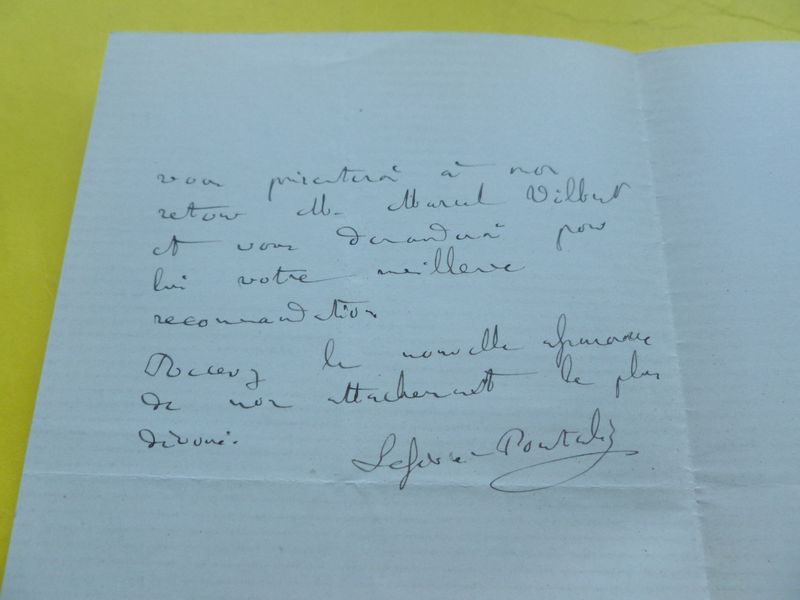 vous présenterai à mon
retour M. Marcel Vilbert
et vous demanderai pour
lui votre meilleure
recommandation
Recevez la nouvelle assurance
de mon attachement le plus
dévoué.
Lefèvre-Pontalis